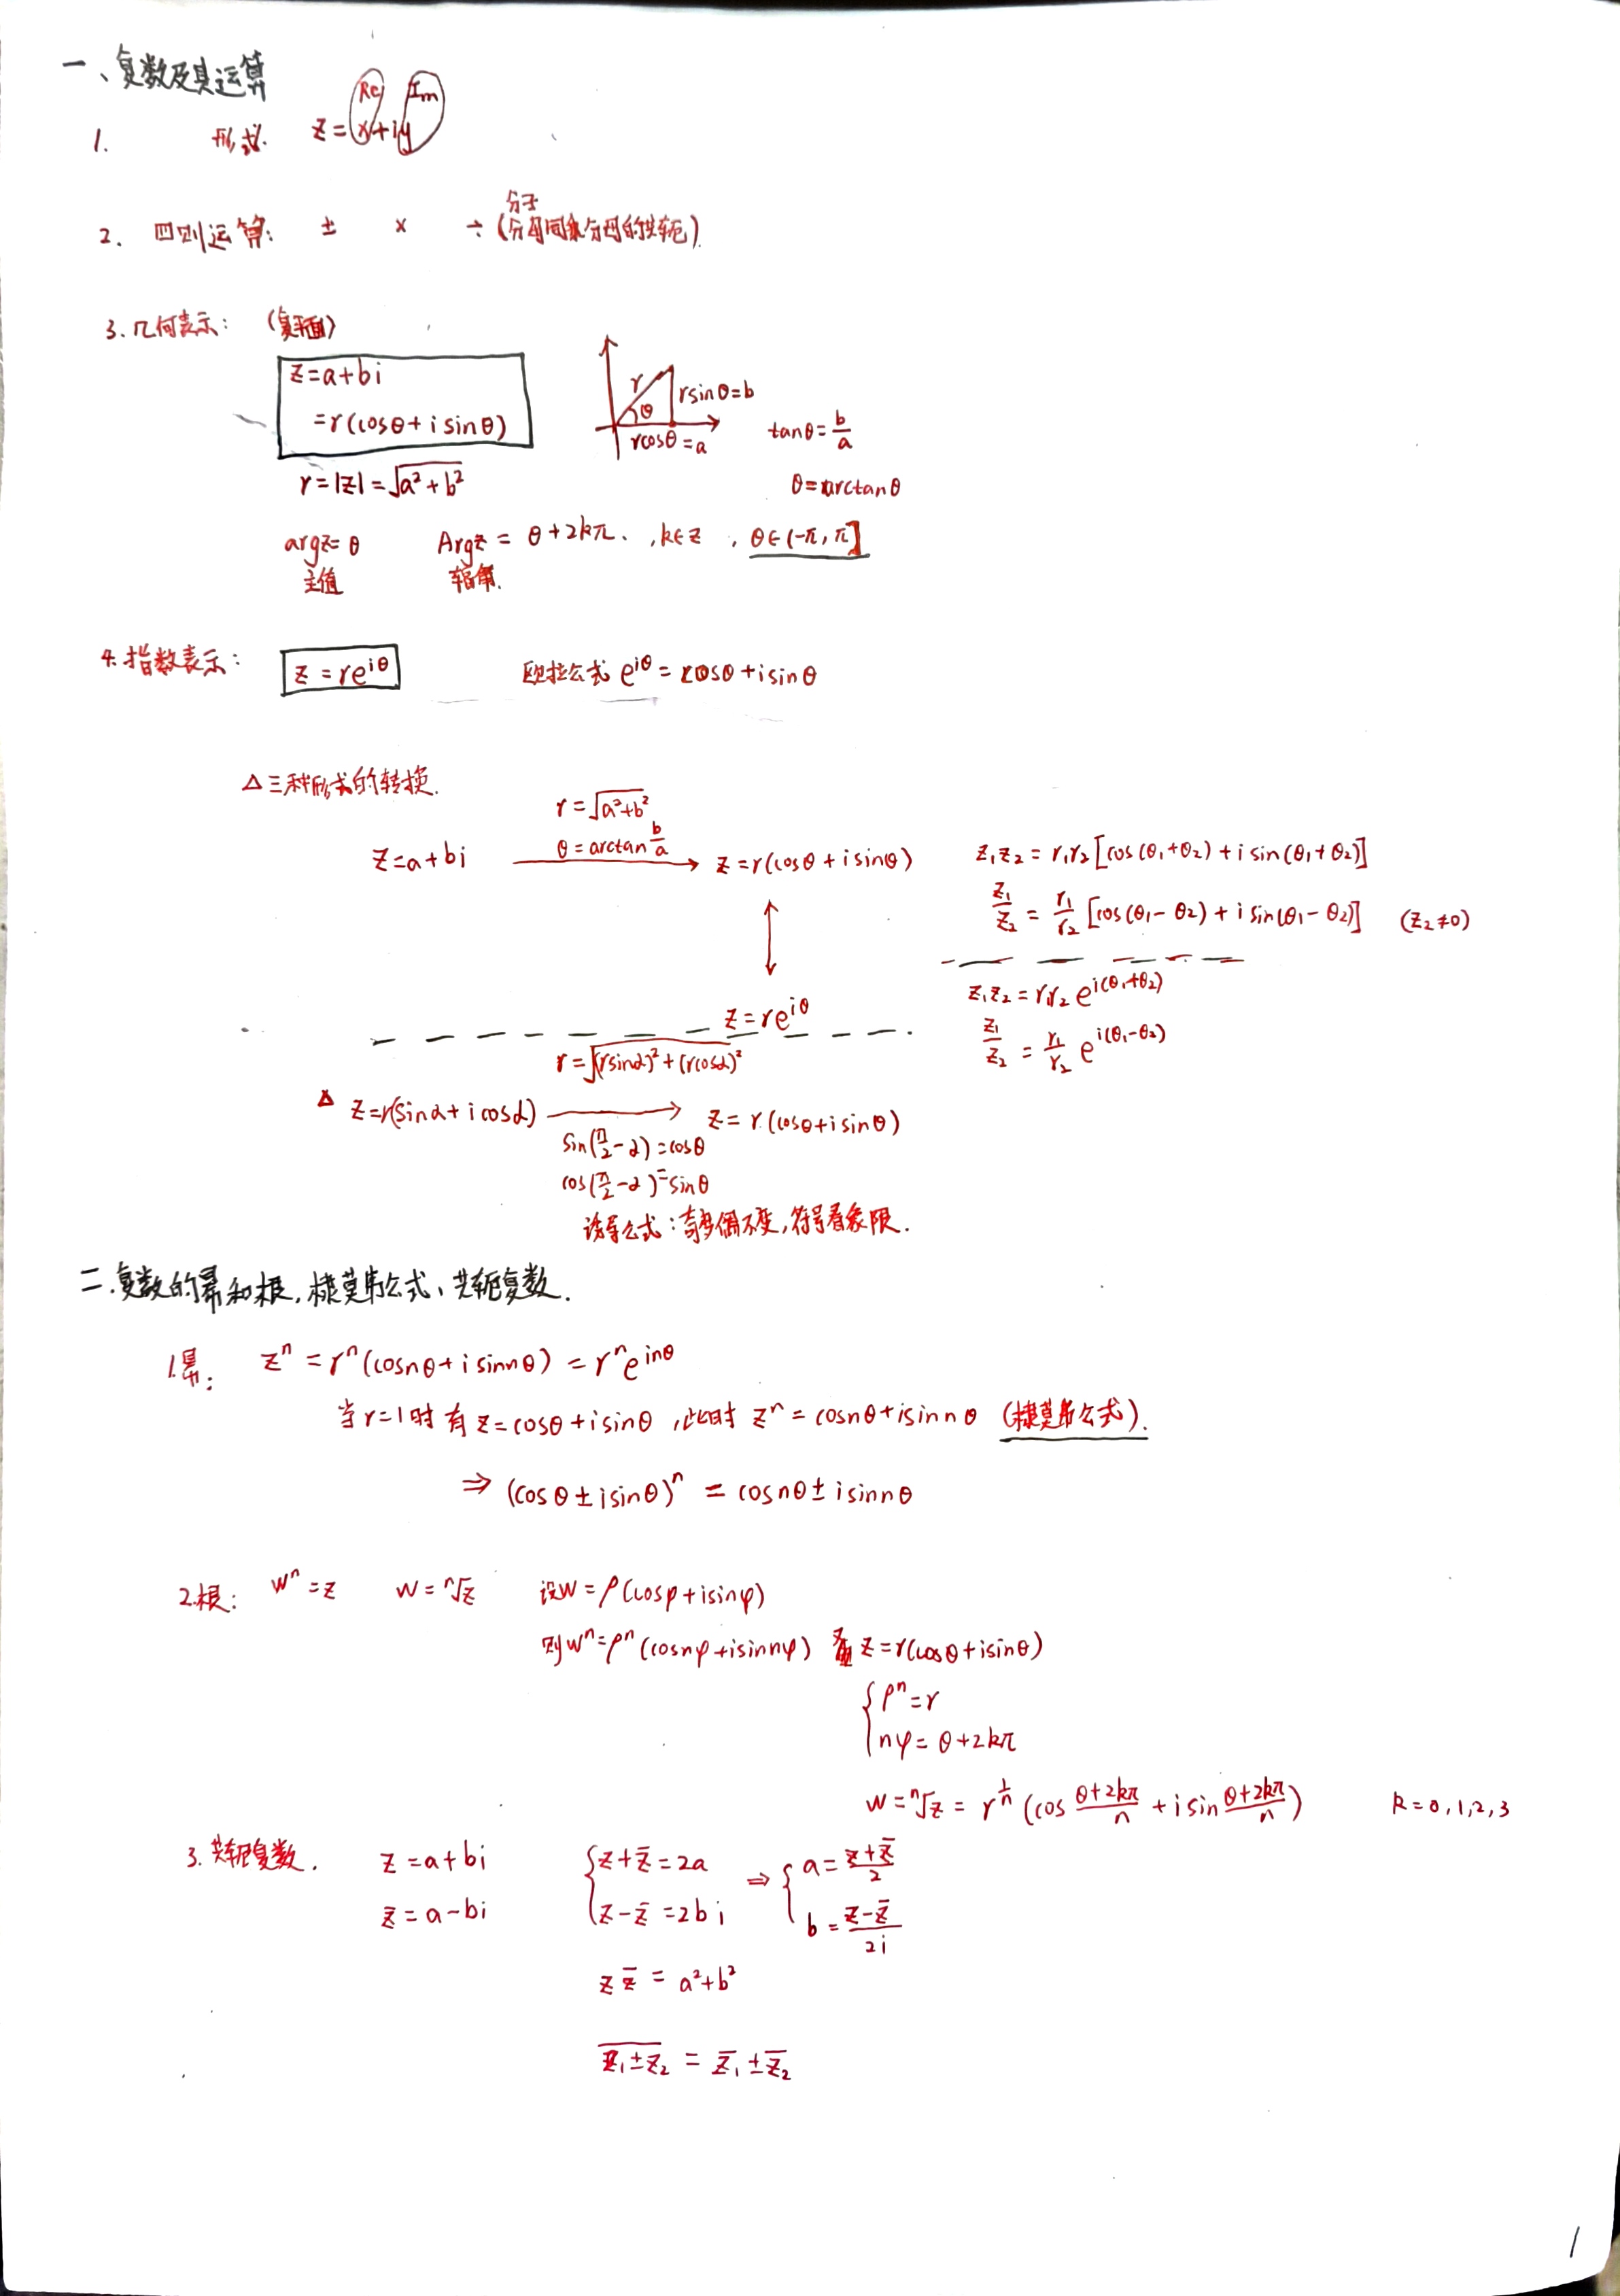 一、复数及其运算
Re Im
1. 形式 z=x+iy
分子
2. 四则运算: ± × ÷(分母同乘分母的共轭)
3.几何表示: (复平面)
z=a+bi
=r(cosθ+isinθ)
r θ rsinθ=b
rcosθ=a
tanθ=b/a
r=|z|=√(a²+b²)
θ=arctanθ
argz=θ Argz=θ+2kπ、,k∈z ,θ∈(-π,π]
主值 辐角.
4.指数表示: z=re^(iθ) 欧拉公式 e^(iθ)=cosθ+isinθ
△三种形式的转换.
r=√(a²+b²)
θ=arctan b/a
z=a+bi ⟶ z=r(cosθ+isinθ)
↕
z=re^(iθ)
z₁z₂=r₁r₂[cos(θ₁+θ₂)+isin(θ₁+θ₂)]
z₁/z₂=r₁/r₂[cos(θ₁-θ₂)+isin(θ₁-θ₂)] (z₂≠0)
z₁z₂=r₁r₂e^(i(θ₁+θ₂))
z₁/z₂=r₁/r₂ e^(i(θ₁-θ₂))
r=√((rsinα)²+(rcosα)²)
△ z=r(sinα+icosα) ⟶ z=r.(cosθ+isinθ)
sin(π/2-α)=cosθ
cos(π/2-α)=sinθ
诱导公式:奇变偶不变,符号看象限.
二.复数的幂和根,棣莫弗公式、共轭复数.
1.幂: zⁿ=rⁿ(cosnθ+isinnθ)=rⁿe^(inθ)
当r=1时有z=cosθ+isinθ,此时zⁿ=cosnθ+isinnθ (棣莫弗公式).
⇒(cosθ±isinθ)ⁿ=cosnθ±isinnθ
2.根: wⁿ=z w=ⁿ√z 设w=ρ(cosφ+isinφ)
则wⁿ=ρⁿ(cosnφ+isinnφ) z=r(cosθ+isinθ)
{ρⁿ=r
nφ=θ+2kπ
w=ⁿ√z=r^(1/n)(cos (θ+2kπ)/n+isin (θ+2kπ)/n) k=0,1,2,3
3.共轭复数. z=a+bi {z+z̄=2a ⇒ {a=(z+z̄)/2
z̄=a-bi z-z̄=2bi b=(z-z̄)/2i
zz̄=a²+b²
\overline{z₁±z₂}=z̄₁±z̄₂
1